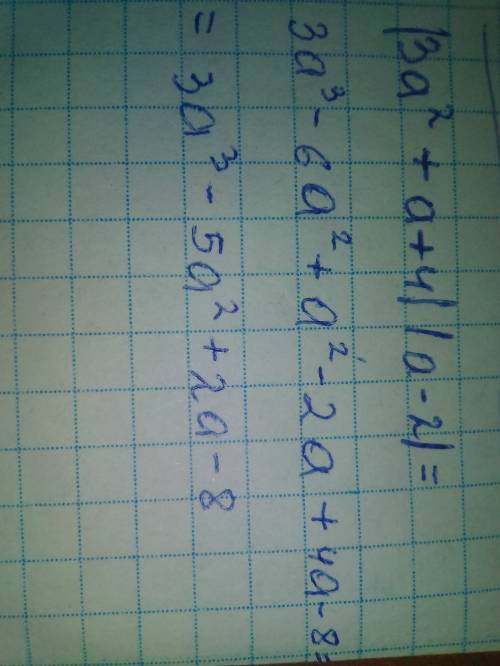 (3a² + a + 4)(a - 2) =
3a³ - 6a² + a² - 2a + 4a - 8 =
= 3a³ - 5a² + 2a - 8